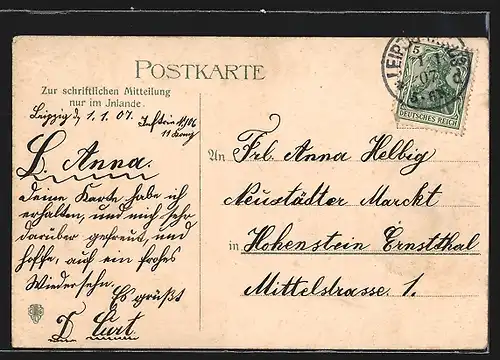 POSTKARTE
Zur schriftlichen Mitteilung
nur im Inlande.
Leipzig d. 1.1.07.
L. Anna.
Deine Karte habe ich
erhalten, und mich sehr
darüber gefreut, und
hoffe, auf ein frohes
Wiedersehn.
Es grüßt
D. Curt.
LEIPZIG
1 1
07
DEUTSCHES REICH
An Frl. Anna Helbig
Neustädter Marckt
in Hohenstein Ernstthal
Mittelstrasse 1.